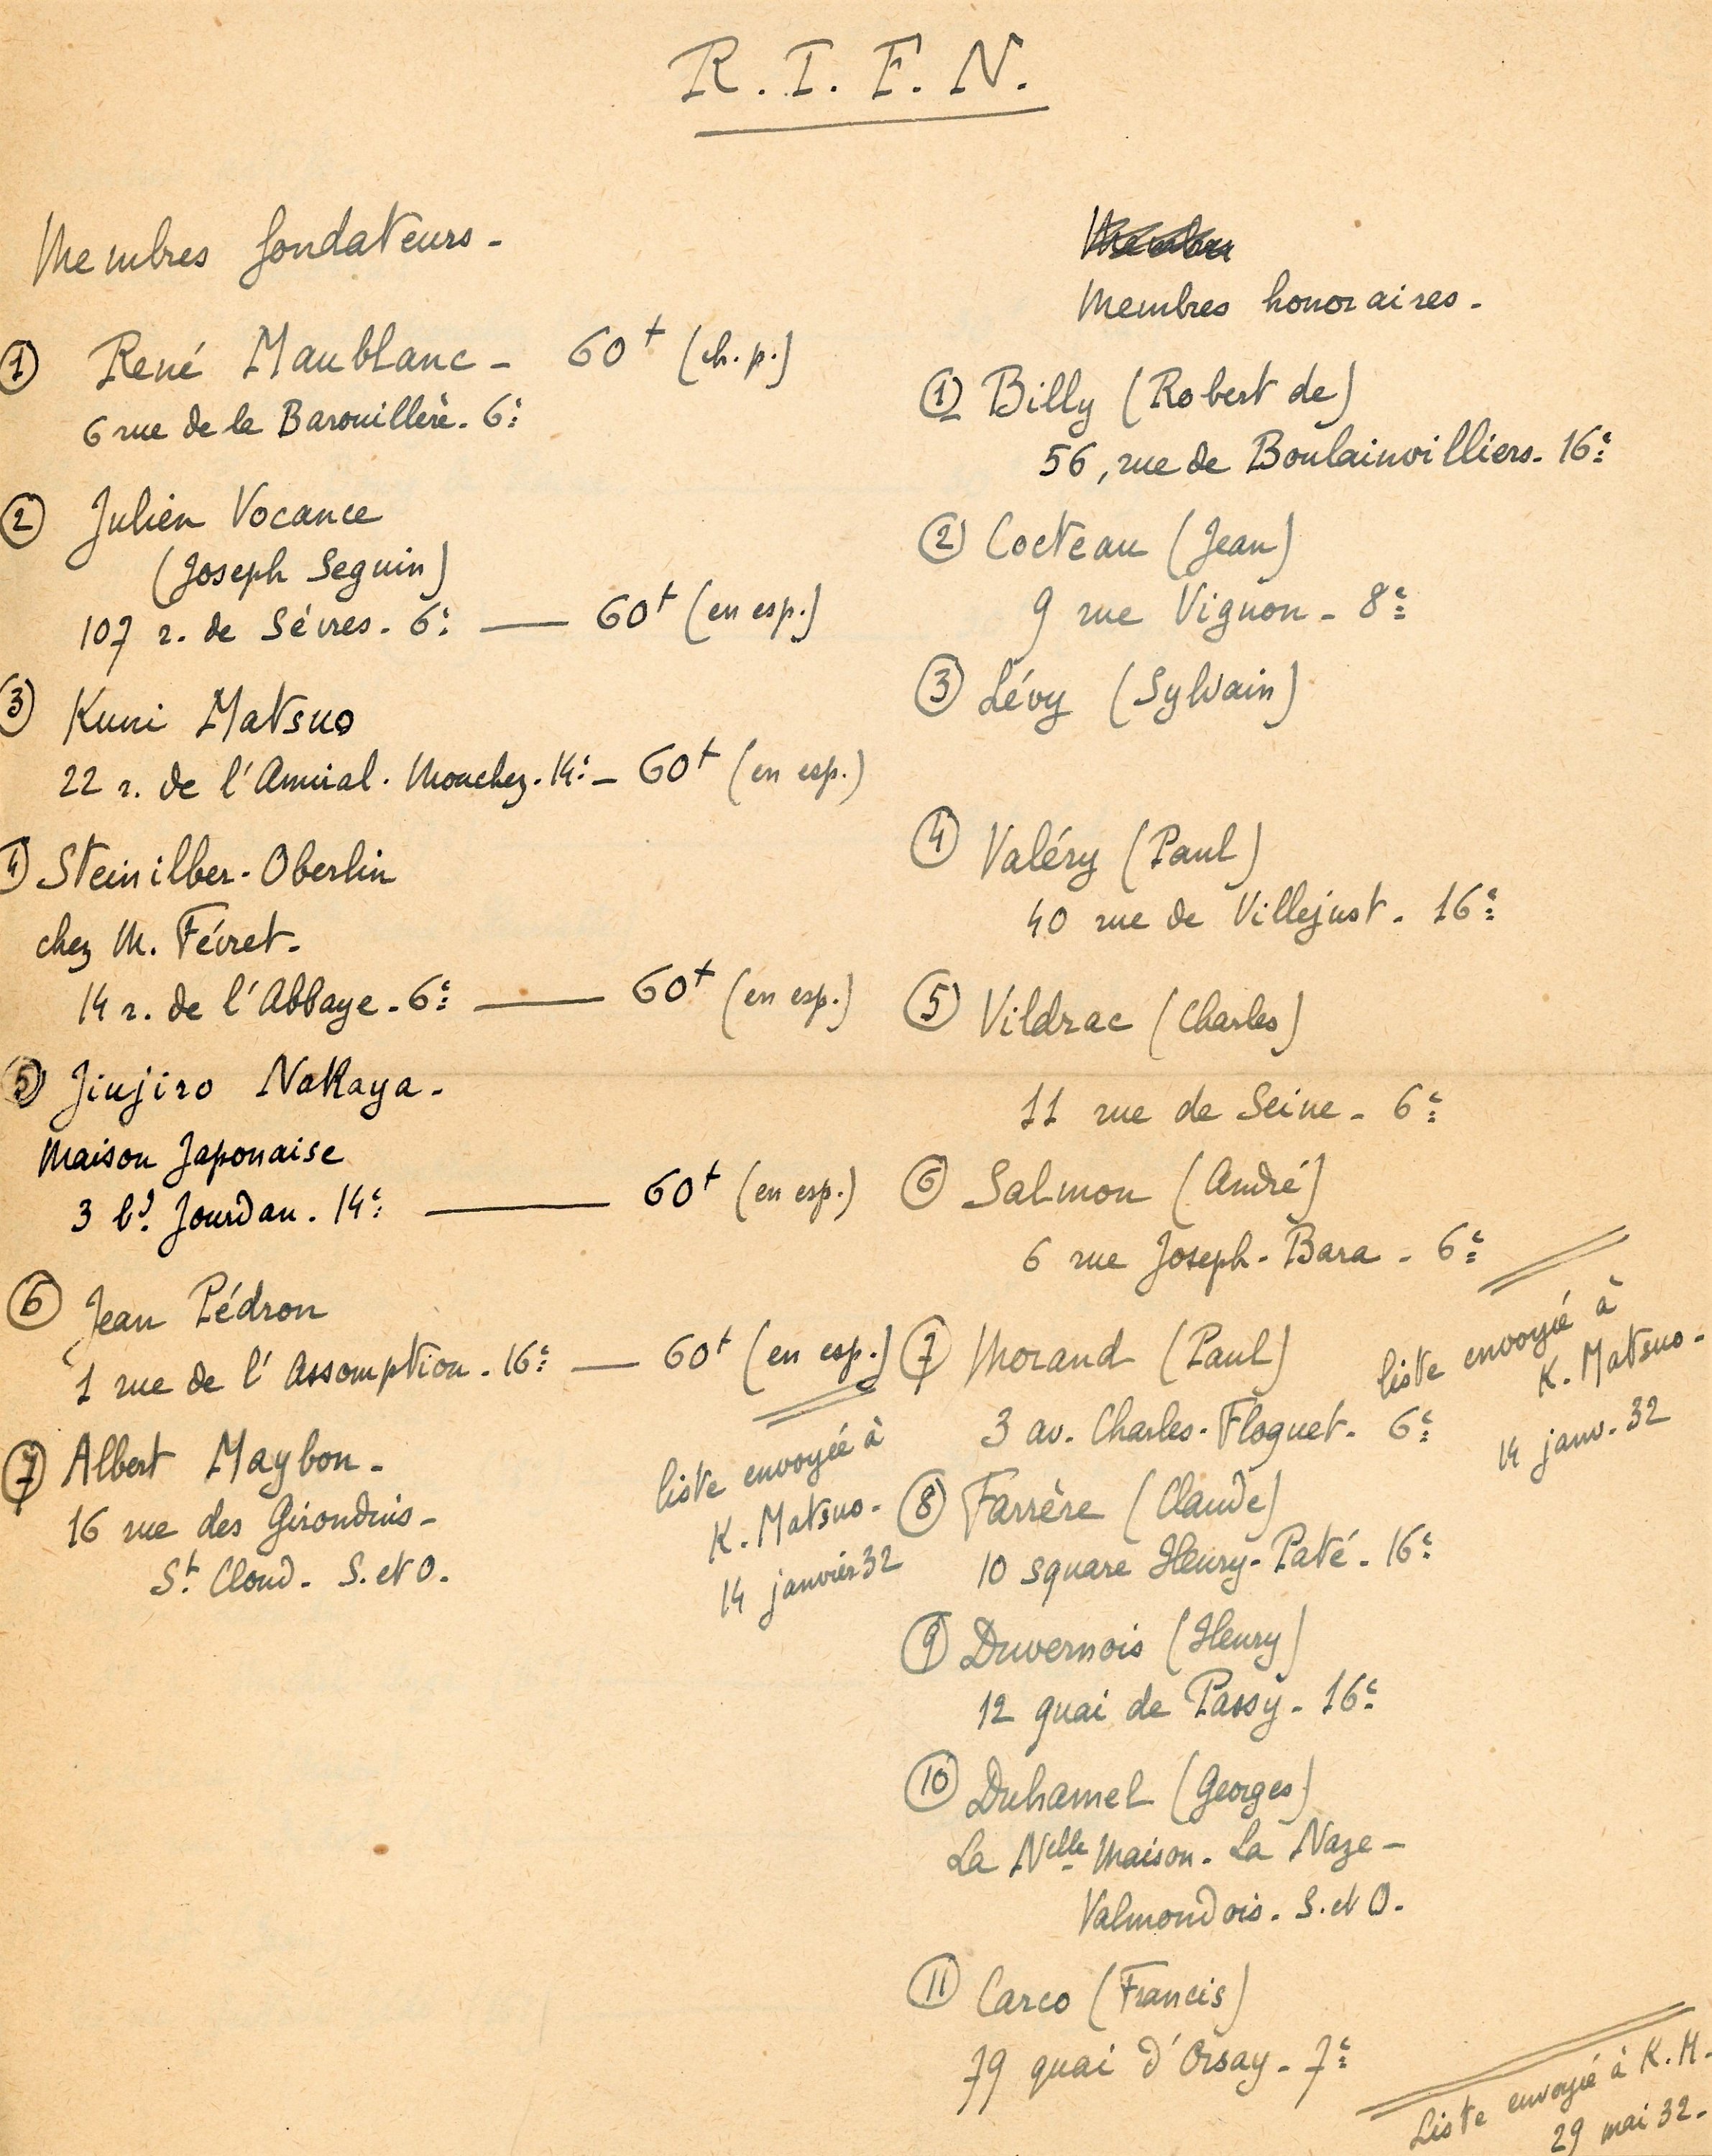 R. I. F. N.
Membres fondateurs -
① René Maublanc - 60ᶠ (ch. p.)
6 rue de la Barouillère. 6ᵉ
② Julien Vocance
(Joseph Seguin)
107 r. de Sèvres. 6ᵉ — 60ᶠ (en esp.)
③ Kuni Matsuo
22 r. de l'Amiral. Mouchez. 14ᵉ - 60ᶠ (en esp.)
④ Steinilber-Oberlin
chez M. Févret.
14 r. de l'Abbaye. 6ᵉ — 60ᶠ (en esp.)
⑤ Jiujiro Nakaya.
Maison Japonaise
3 bᵈ Jourdan. 14ᵉ — 60ᶠ (en esp.)
⑥ Jean Pédron
1 rue de l'Assomption. 16ᵉ — 60ᶠ (en esp.)
liste envoyée à
K. Matsuo.
14 janvier 32
⑦ Albert Maybon -
16 rue des Girondins -
Sᵗ Cloud. S. et O.
Membres honoraires -
① Billy (Robert de)
56, rue de Boulainvilliers. 16ᵉ
② Cocteau (Jean)
9 rue Vignon - 8ᵉ
③ Lévy (Sylvain)
④ Valéry (Paul)
40 rue de Villejust. 16ᵉ
⑤ Vildrac (Charles)
11 rue de Seine - 6ᵉ
⑥ Salmon (André)
6 rue Joseph-Bara - 6ᵉ
liste envoyée à
K. Matsuo.
14 janv. 32
⑦ Morand (Paul)
3 av. Charles-Floquet. 6ᵉ
⑧ Farrère (Claude)
10 square Henry-Paté. 16ᵉ
⑨ Duvernois (Henry)
12 quai de Passy. 16ᵉ
⑩ Duhamel (Georges)
La Nˡˡᵉ Maison. La Naze -
Valmondois. S. et O.
⑪ Carco (Francis)
79 quai d'Orsay. 7ᵉ
Liste envoyée à K. M.
29 mai 32.